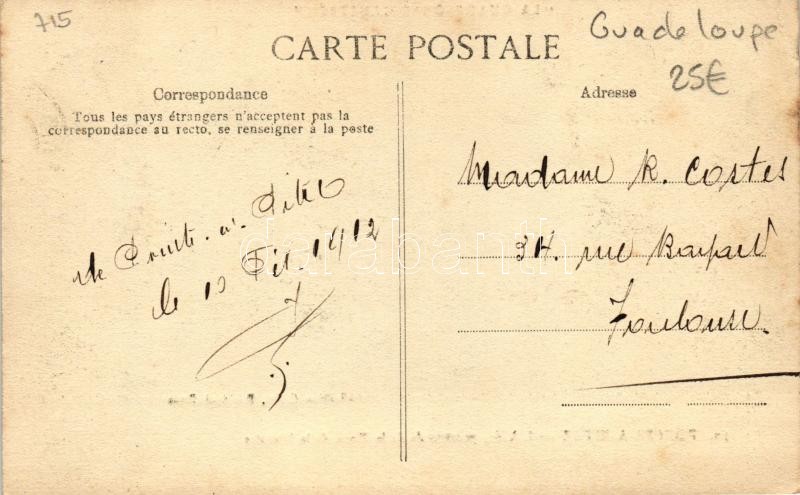 715
Guadeloupe
25€
CARTE POSTALE
Correspondance
Tous les pays étrangers n'acceptent pas la
correspondance au recto, se renseigner à la poste
Adresse
Pointe. à. Pitre
le 10 1912
Madame R. Costes
34. rue Bayard
Toulouse.
darabanth